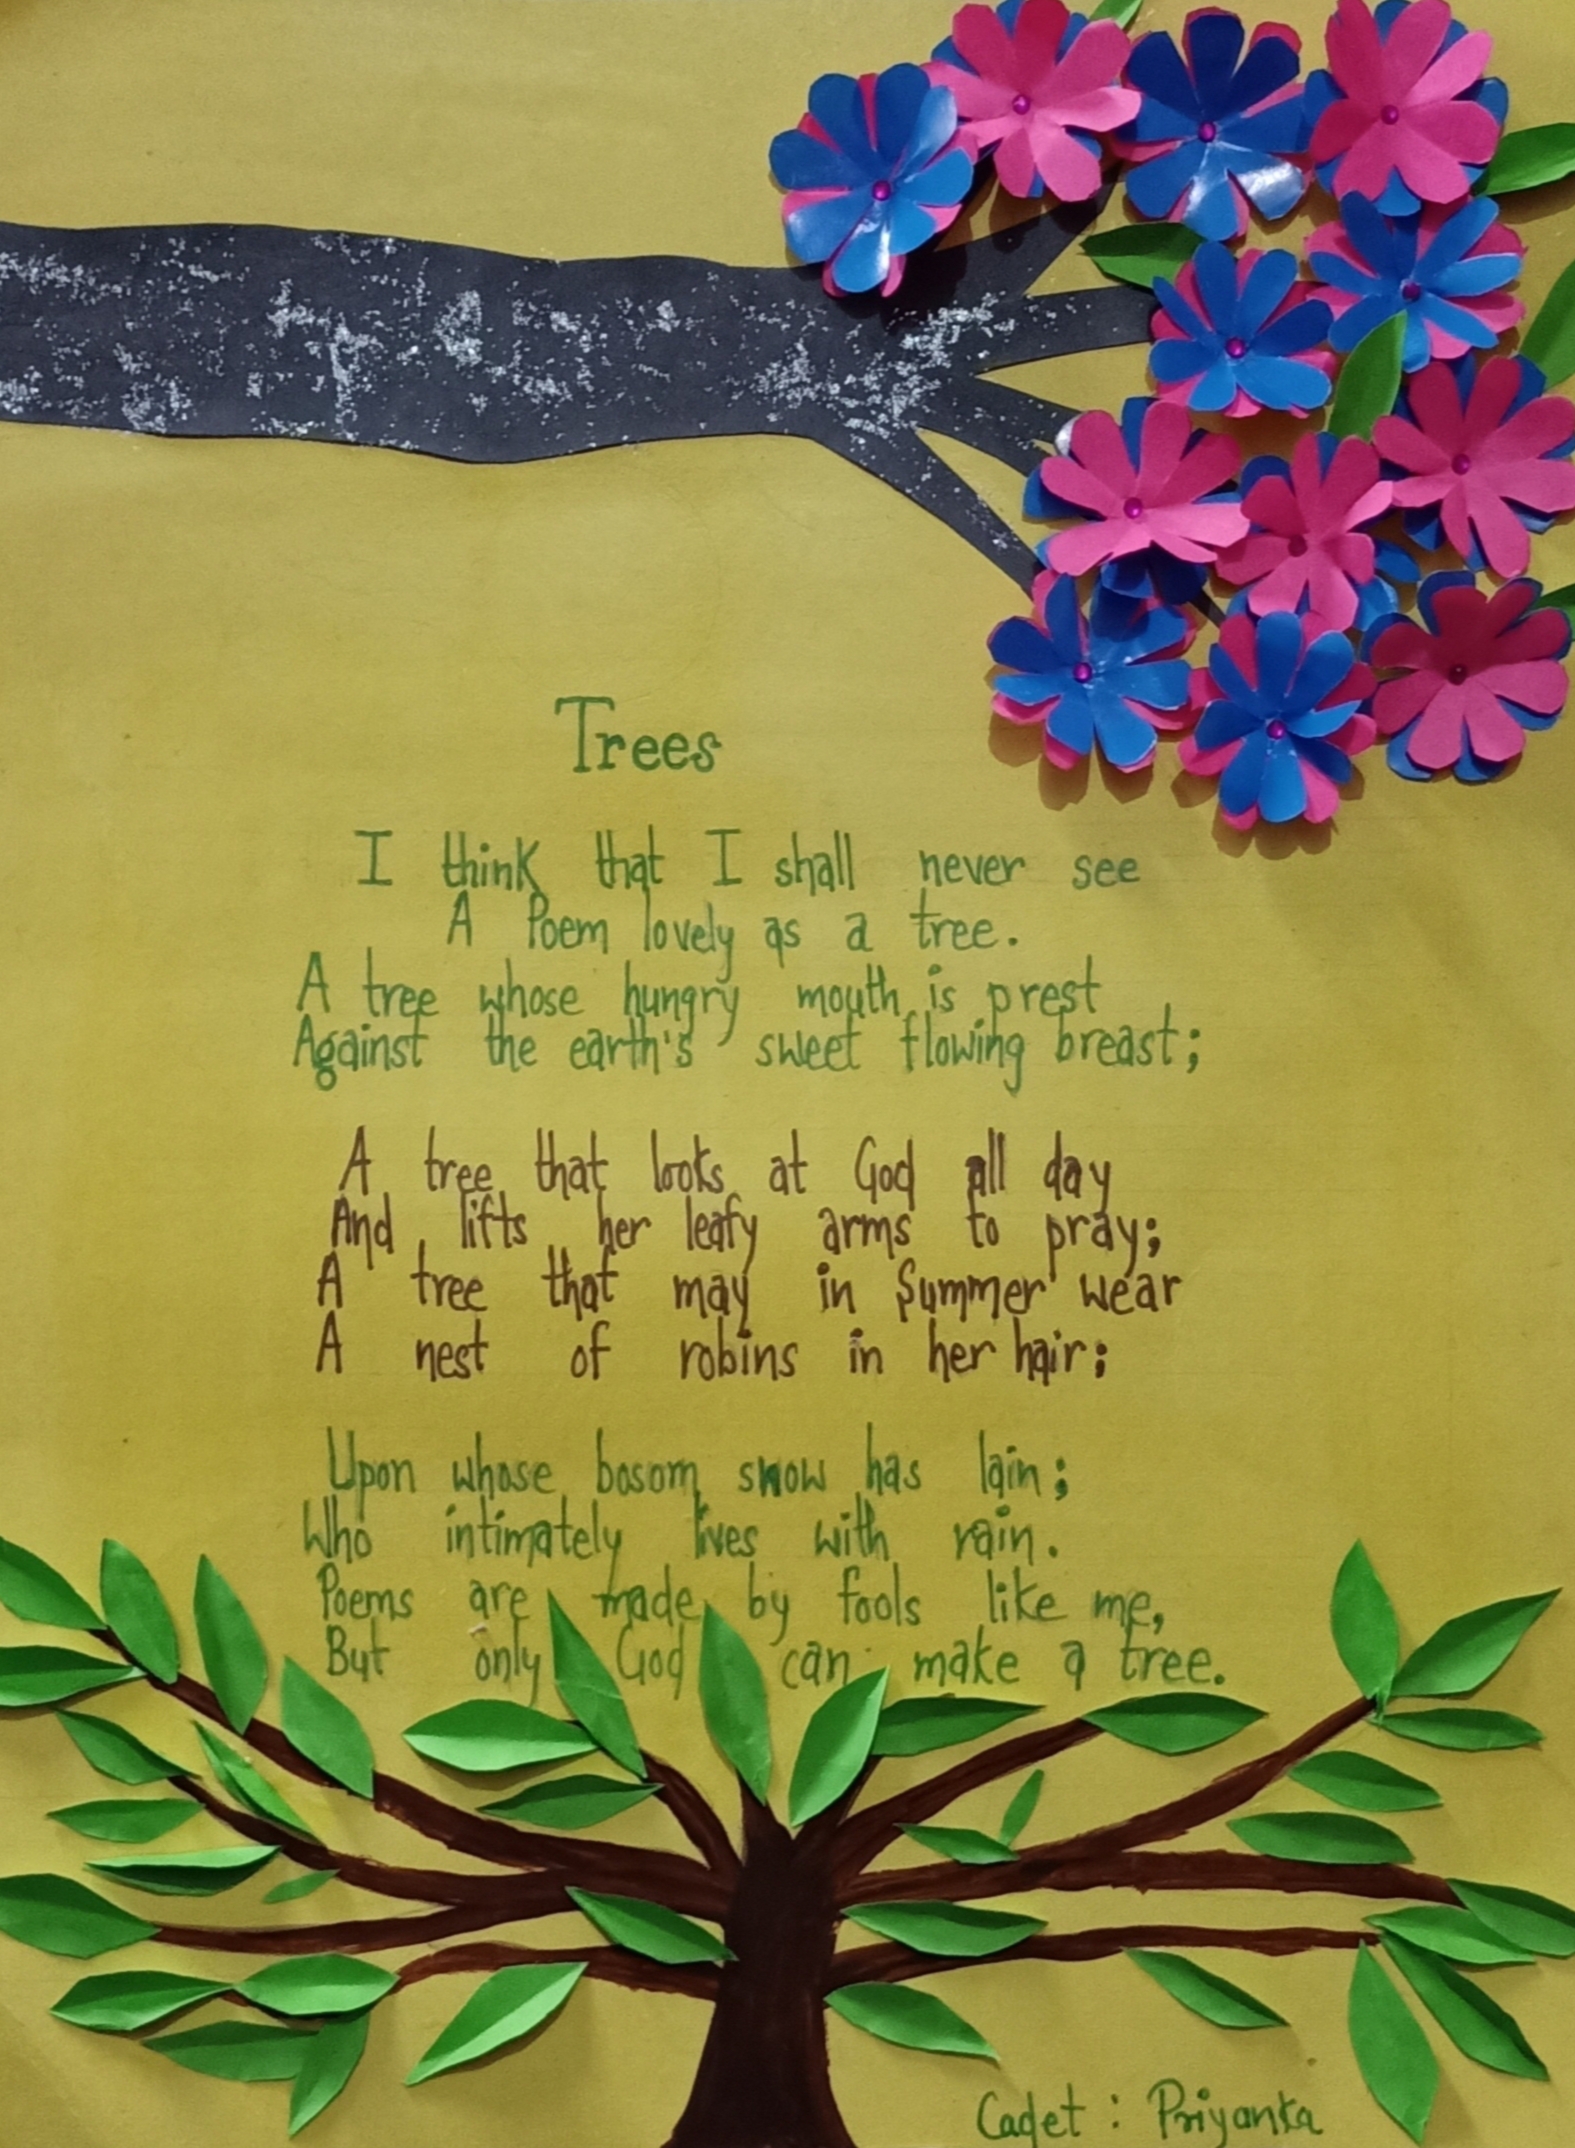 Trees
I think that I shall never see
A Poem lovely as a tree.
A tree whose hungry mouth is prest
Against the earth's sweet flowing breast;
A tree that looks at God all day
And lifts her leafy arms to pray;
A tree that may in Summer wear
A nest of robins in her hair;
Upon whose bosom snow has lain;
Who intimately lives with rain.
Poems are made by fools like me,
But only God can make a tree.
Cadet : Priyanka